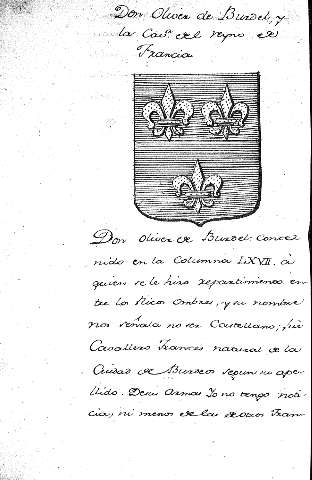 Don Oliver de Burdel, y
la Casa del reyno de
Francia
Don Oliver de Burdel. Conte
nido en la Columna LXVII. à
quien se le hizo repartimiento en
tre los Ricos Ombres, y su nombre
nos señala no ser Castellano; fue
Cavallero Frances natural de la
Ciudad de Burdeos segun su ape
llido. De sus Armas Yo no tengo noti
cia, ni menos de las de otros Fran